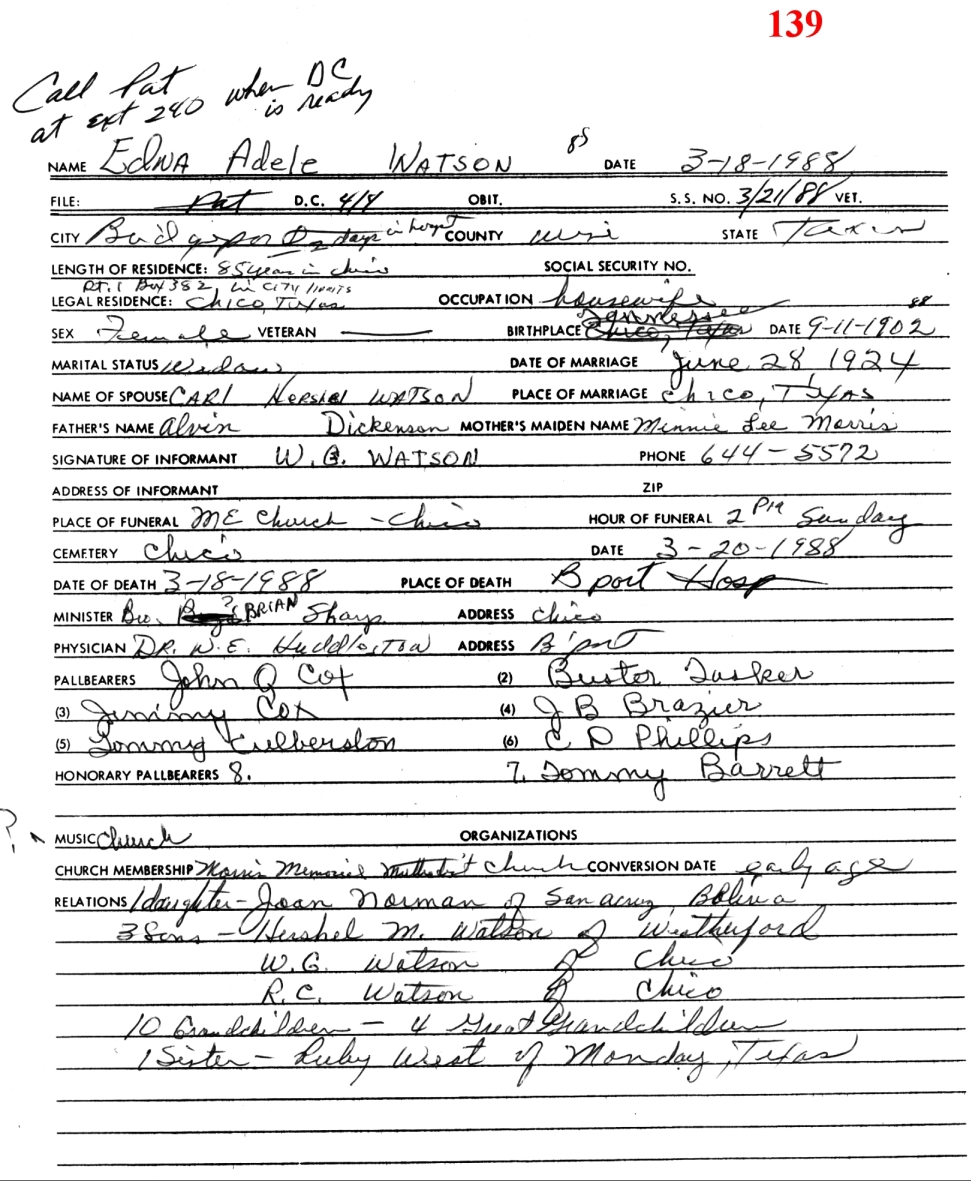 139
Call Pat when DC
at ext 240 is ready
NAME Edna Adele Watson 85 DATE 3-18-1988
FILE: Pat D.C. 4/4 OBIT. S.S. NO. 3/21/88 VET.
CITY days in COUNTY Wise STATE Texas
LENGTH OF RESIDENCE: 85 years in Chico SOCIAL SECURITY NO.
Rt. 1 Box 382 in City limits
LEGAL RESIDENCE: Chico, Texas OCCUPATION housewife
Tennessee 88
SEX Female VETERAN BIRTHPLACE Chico, Texas DATE 9-11-1902
MARITAL STATUS Widow DATE OF MARRIAGE June 28 1924
NAME OF SPOUSE Carl Hershel Watson PLACE OF MARRIAGE Chico, Texas
FATHER'S NAME Alvin Dickenson MOTHER'S MAIDEN NAME Minnie Lee Morris
SIGNATURE OF INFORMANT W. G. WATSON PHONE 644-5572
ADDRESS OF INFORMANT ZIP
PLACE OF FUNERAL ME Church - Chico HOUR OF FUNERAL 2 PM Sunday
CEMETERY Chico DATE 3-20-1988
DATE OF DEATH 3-18-1988 PLACE OF DEATH B port Hosp
MINISTER Bro. ? BRIAN Sharp ADDRESS Chico
PHYSICIAN DR. W.E. Huddleston ADDRESS B'port
PALLBEARERS John Q Cox (2) Buster Tasker
(3) Jimmy Cox (4) J B Brazier
(5) Tommy Culberston (6) C D Phillips
HONORARY PALLBEARERS 8. 7. Tommy Barrett
? MUSIC Church ORGANIZATIONS
CHURCH MEMBERSHIP Morris Memorial Methodist Church CONVERSION DATE early age
RELATIONS 1 daughter - Joan Norman of San acruz, Bolivia
3 Sons - Hershel M. Watson of Weatherford
W.G. Watson of Chico
R.C. Watson of Chico
10 Grandchildren - 4 Great Grandchildren
1 Sister - Ruby West of Monday, Texas